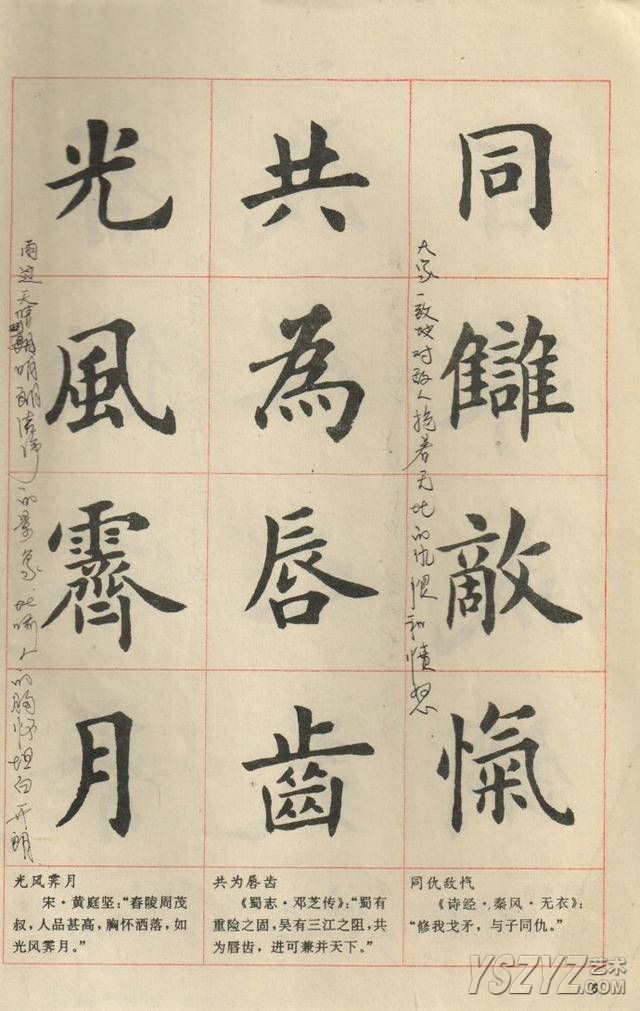 同讎敵愾
大家一致地对敌人抱着无比的仇恨和愤怒
共為唇齒
光風霽月
雨过天晴明朗洁净的景象 比喻人的胸怀坦白开朗
同仇敌忾
《诗经·秦风·无衣》:
“修我戈矛,与子同仇。”
共为唇齿
《蜀志·邓芝传》:“蜀有
重险之固,吴有三江之阻,共
为唇齿,进可兼并天下。”
光风霁月
宋·黄庭坚:“春陵周茂
叔,人品甚高,胸怀洒落,如
光风霁月。”
YSZYZ艺术
.COM